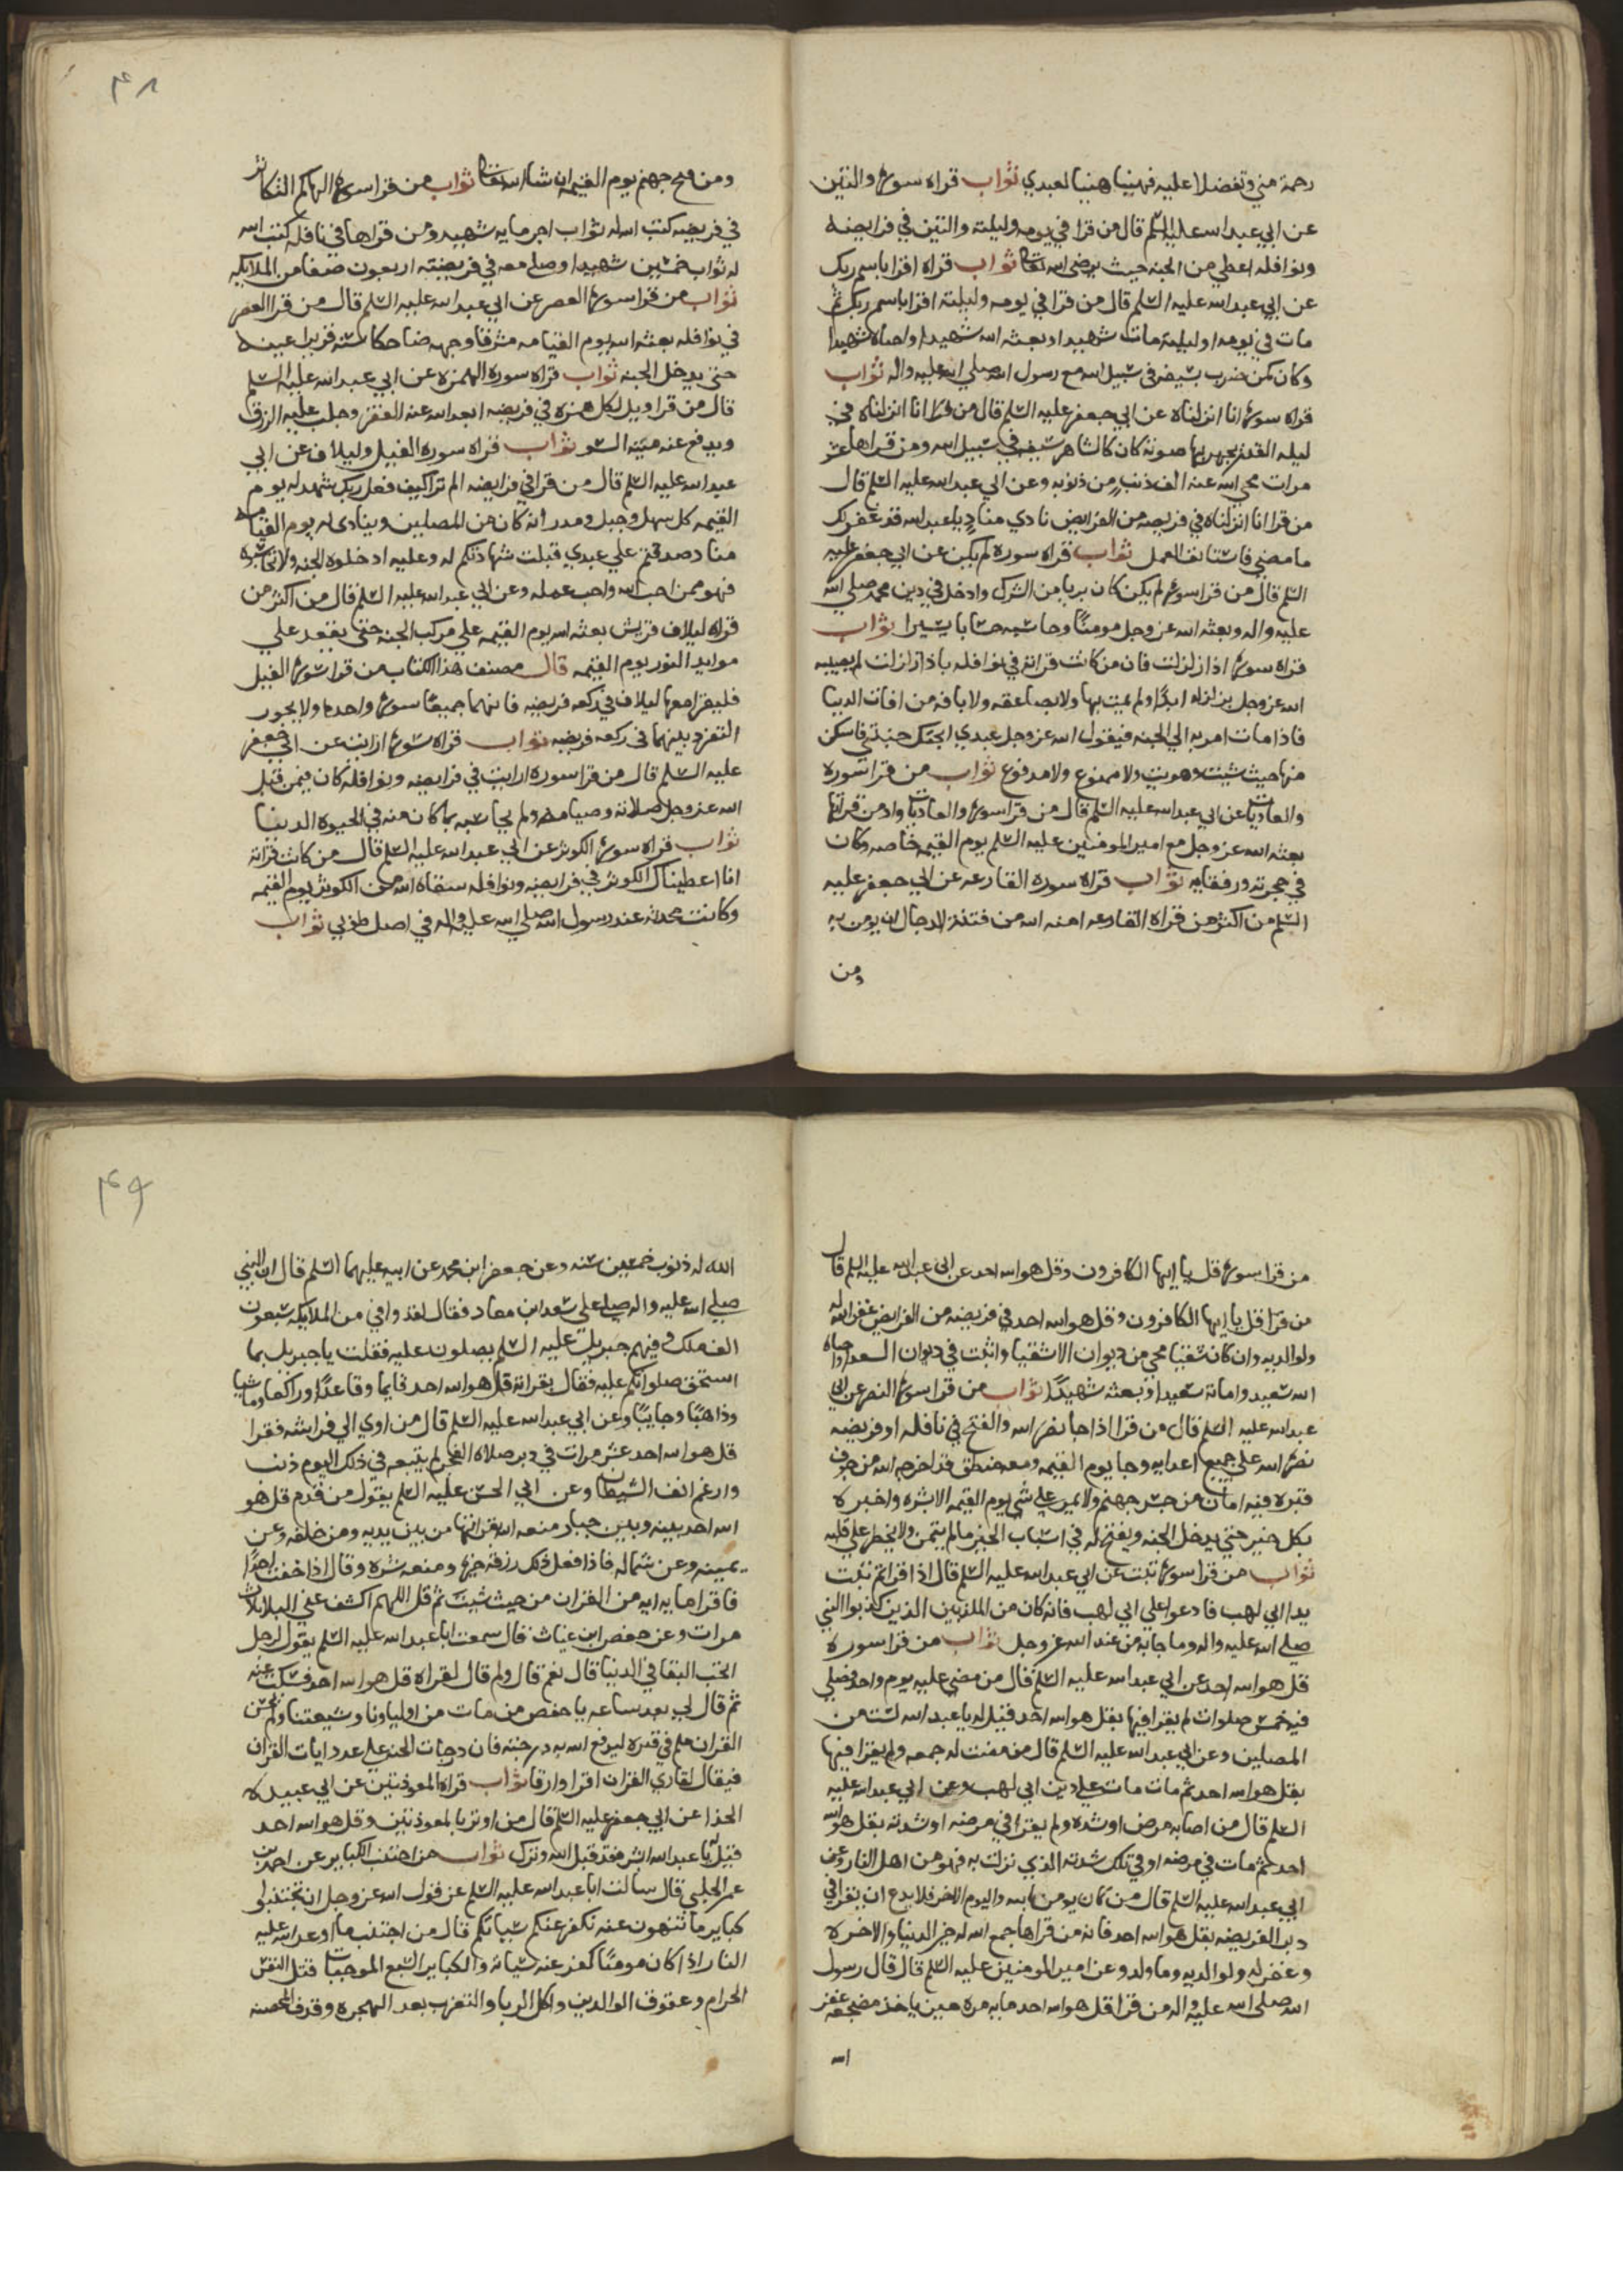 رحمة مني وتفضلا عليه فهنيا هنيا لعبدي ثواب قراه سورة والتين
عن ابي عبد الله عليه السلم قال من قرا في يومه وليلته والتين في فرايضه
ونوافله اعطي من الجنه حيث يرضى الله تعالى ثواب قراه اقرا باسم ربك
عن ابي عبد الله عليه السلم قال من قرا في يومه وليلته اقرا باسم ربك ثم
مات في يومه او ليلته مات شهيدا وبعثه الله شهيدا واحياه شهيدا
وكان كمن ضرب بسيفه في سبيل الله مع رسول الله صلي الله عليه واله ثواب
قراه سورة انا انزلناه عن ابي جعفر عليه السلم قال من قرا انا انزلناه في
ليله القدر يجهر بها صوته كان كالشاهر سيفه في سبيل الله ومن قراها عشر
مرات محي الله عنه الف ذنب من ذنوبه وعن ابي عبد الله عليه السلم قال
من قرا انا انزلناه في فريضه من الفرايض نادي مناد يا عبد الله قد غفر لك
ما مضي فاستانف العمل ثواب قراه سورة لم يكن عن ابي جعفر عليه
السلم قال من قرا سورة لم يكن كان بريا من الشرك وادخل في دين محمد صلي الله
عليه واله وبعثه الله عز وجل مومنا وحاسبه حسابا يسيرا ثواب
قراه سورة اذا زلزلت فان من كانت قراته في نوافله باذا زلزلت لم يصبه
الله عز وجل بزلزله ابدا ولم يمت بها ولا بصاعقه ولا بافه من افات الدنيا
فاذا مات امر به الي الجنه فيقول الله عز وجل عبدي ابحتك جنتي فاسكن
منها حيث شيت وهويت لا ممنوع ولا مدفوع ثواب من قرا سورة
والعاديات عن ابي عبد الله عليه السلم قال من قرا سورة والعاديات وادمن قراتها
بعثه الله عز وجل مع امير المومنين عليه السلم يوم القيمه خاصه وكان
في حجرته ورفقايه ثواب قراه سوره القارعه عن ابي جعفر عليه
السلم من اكثر من قراه القارعه امنه الله من فتنة الدجال ان يومن به
ومن
۴۸
ومن فيح جهنم يوم القيمه ان شا الله تعالى ثواب من قرا سورة الهاكم التكاثر
في فريضه كتب الله له ثواب اجر مايه شهيد ومن قراها في نافله كتب الله
له ثواب خمسين شهيدا وصلي معه في فريضته اربعون صفا من الملايكه
ثواب من قرا سورة العصر عن ابي عبد الله عليه السلم قال من قرا العصر
في نوافله بعثه الله يوم القيامه مشرقا وجهه ضاحكا سنه قريرا عينه
حتى يدخل الجنه ثواب قراه سوره الهمزه عن ابي عبد الله عليه السلم
قال من قرا ويل لكل همزه في فريضه ابعد الله عنه الفقر وجلب عليه الرزق
ويدفع عنه ميته السو ثواب قراه سوره الفيل وليلاف عن ابي
عبد الله عليه السلم قال من قرا في فرايضه الم تر كيف فعل ربك شهد له يوم
القيمه كل سهل وجبل ومدر انه كان من المصلين وينادى له يوم القيامه
مناد صدقتم علي عبدي قبلت شهادتكم له وعليه ادخلوه الجنه ولا تحاسبوه
فهو ممن احب الله واحب عمله وعن ابي عبد الله عليه السلم قال من اكثر من
قراه ليلاف قريش بعثه الله يوم القيمه علي مركب الجنه حتى يقعد علي
موايد النور يوم القيمه قال مصنف هذا الكتاب من قرا سورة الفيل
فليقرا معها ليلاف في ركعه فريضه فانهما جميعا سورة واحده ولا يجوز
التفرد بينهما في ركعه فريضه ثواب قراه سورة ارايت عن ابي جعفر
عليه السلم قال من قرا سوره ارايت في فرايضه ونوافله كان فيمن قبل
الله عز وجل صلاته وصيامه ولم يحاسبه بما كان منه في الحيوه الدنيا
ثواب قراه سورة الكوثر عن ابي عبد الله عليه السلم قال من كانت قراته
انا اعطيناك الكوثر في فرايضه ونوافله سقاه الله من الكوثر يوم القيمه
وكانت محدثه عند رسول الله صلي الله عليه واله في اصل طوبي ثواب
من قرا سورة قل يا ايها الكافرون وقل هو الله احد عن ابي عبد الله عليه السلم قال
من قرا قل يا ايها الكافرون وقل هو الله احد في فريضه من الفرايض غفر الله له
ولوالديه وان كان شقيا محي من ديوان الاشقيا واثبت في ديوان السعدا واحياه
الله سعيدا واماته سعيدا وبعثه شهيدا ثواب من قرا سورة النصر عن ابي
عبد الله عليه السلم قال من قرا اذا جا نصر الله والفتح في نافله او فريضه
نصره الله علي جميع اعدايه وجا يوم القيمه ومعه منطق قد اخرجه الله من جوف
قبره فيه امان من حر جهنم ولا يمر علي شي يوم القيمه الا بشره واخبره
بكل خير حتي يدخل الجنه ويفتح له في اسباب الخير ما لم يتمن ولا يخطر علي قلبه
ثواب من قرا سورة تبت عن ابي عبد الله عليه السلم قال اذا قراتم تبت
يدا ابي لهب فادعوا علي ابي لهب فانه كان من المكذبين الذين كذبوا النبي
صلي الله عليه واله وما جا به من عند الله عز وجل ثواب من قرا سوره
قل هو الله احد عن ابي عبد الله عليه السلم قال من مضي عليه يوم واحد فصلي
فيه خمس صلوات لم يقرا فيها بقل هو الله احد قيل له يا عبد الله لست من
المصلين وعن ابي عبد الله عليه السلم قال من مضت له جمعه ولم يقرا فيها
بقل هو الله احد ثم مات مات علي دين ابي لهب وعن ابي عبد الله عليه
السلم قال من اصابه مرض او شده ولم يقرا في مرضه او شدته بقل هو الله
احد ثم مات في مرضه او في تلك شدته الذي نزلت به فهو من اهل النار وعن
ابي عبد الله عليه السلم قال من كان يومن بالله واليوم الاخر فلا يدع ان يقرا في
دبر الفريضه بقل هو الله احد فانه من قراها جمع الله له خير الدنيا والاخره
وغفر له ولوالديه وما ولد وعن امير المومنين عليه السلم قال قال رسول
الله صلى الله عليه واله من قرا قل هو الله احد مايه مره حين ياخذ مضجعه غفر
الله
۴۹
الله له ذنوب خمسين سنه وعن جعفر ابن محمد عن ابيه عليهما السلم قال ان النبي
صلي الله عليه واله صلي علي سعد ابن معاد فقال لقد وافي من الملايكه سبعون
الف ملك وفيهم جبريل عليه السلم يصلون عليه فقلت يا جبريل بما
استحق صلواتكم عليه فقال بقراته قل هو الله احد قايما وقاعدا وراكعا وماشيا
وذاهبا وجايبا وعن ابي عبد الله عليه السلم قال من اوي الي فراشه فقرا
قل هو الله احد عشر مرات في دبر صلاه الفجر لم يتبعه في ذلك اليوم ذنب
وارغم انف الشيطان وعن ابي الحسن عليه السلم يقول من قدم قل هو
الله احد بينه وبين جبار منعه الله بقراتها من بين يديه ومن خلفه وعن
يمينه وعن شماله فاذا فعل ذلك رزقه خيره ومنعه شره وقال اذا خفت احدا
فاقرا مايه ايه من القران من حيث شيت ثم قل اللهم اكشف عني البلا ثلاث
مرات وعن حفص ابن غياث قال سمعت ابا عبد الله عليه السلم يقول لرجل
اتحب البقا في الدنيا قال نعم قال ولم قال لقراه قل هو الله احد فسكت عنه
ثم قال لي بعد ساعه يا حفص من مات من اولياونا وشيعتنا ولم يحسن
القران علم في قبره ليرفع الله به درجته فان درجات الجنه علي عدد ايات القران
فيقال لقاري القران اقرا وارقا ثواب قراه المعوذتين عن ابي عبيده
الحذا عن ابي جعفر عليه السلم قال من اوتر بالمعوذتين وقل هو الله احد
قيل له يا عبد الله ابشر فقد قبل الله وترك ثواب من اجتنب الكباير عن احمد بن
عمر الحلبي قال سالت ابا عبد الله عليه السلم عن قول الله عز وجل ان تجتنبوا
كباير ما تنهون عنه نكفر عنكم سياتكم قال من اجتنب ما اوعد الله عليه
النار اذا كان مومنا كفر عنه سياته والكباير السبع الموجبات قتل النفس
الحرام وعقوق الوالدين واكل الربا والتعرب بعد الهجره وقذف المحصنه